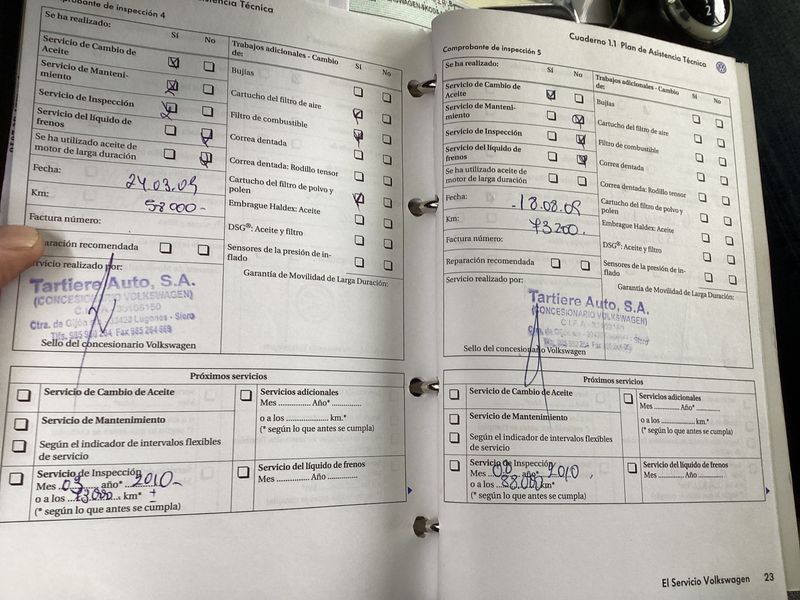 probante de inspección 4
sistencia Técnica
Se ha realizado:
Sí No
Servicio de Cambio de
Aceite
Servicio de Manteni-
miento
Servicio de Inspección
Servicio del líquido de
frenos
Se ha utilizado aceite de
motor de larga duración
Fecha:
24.03.09
Km:
58000-
Factura número:
aración recomendada
rvicio realizado por:
Tartiere Auto, S.A.
(CONCESIONARIO VOLKSWAGEN)
Ctra. de Gijón
Lugones - Siero
Fax 985 264 669
Sello del concesionario Volkswagen
Trabajos adicionales - Cambio
de:
Sí No
Bujías
Cartucho del filtro de aire
Filtro de combustible
Correa dentada
Correa dentada: Rodillo tensor
Cartucho del filtro de polvo y
polen
Embrague Haldex: Aceite
DSG®: Aceite y filtro
Sensores de la presión de in-
flado
Garantía de Movilidad de Larga Duración:
Próximos servicios
Servicio de Cambio de Aceite
Servicio de Mantenimiento
Según el indicador de intervalos flexibles
de servicio
Servicio de Inspección
Mes 03 año* 2010-
o a los 73.000 km* ±
(* según lo que antes se cumpla)
Servicios adicionales
Mes .............. Año* ..............
o a los .................... km.*
(* según lo que antes se cumpla)
Servicio del líquido de frenos
Mes .............. Año ..............
Cuaderno 1.1 Plan de Asistencia Técnica
Comprobante de inspección 5
Se ha realizado:
Sí No
Servicio de Cambio de
Aceite
Servicio de Manteni-
miento
Servicio de Inspección
Servicio del líquido de
frenos
Se ha utilizado aceite de
motor de larga duración
Fecha:
18.08.09
Km:
73200.
Factura número:
Reparación recomendada
Servicio realizado por:
Tartiere Auto, S.A.
(CONCESIONARIO VOLKSWAGEN)
Sello del concesionario Volkswagen
Trabajos adicionales - Cambio
de:
Sí No
Bujías
Cartucho del filtro de aire
Filtro de combustible
Correa dentada
Correa dentada: Rodillo tensor
Cartucho del filtro de polvo y
polen
Embrague Haldex: Aceite
DSG®: Aceite y filtro
Sensores de la presión de in-
flado
Garantía de Movilidad de Larga Duración:
Próximos servicios
Servicio de Cambio de Aceite
Servicio de Mantenimiento
Según el indicador de intervalos flexibles
de servicio
Servicio de Inspección
Mes 08 año* 2010
o a los 88.000 km*
(* según lo que antes se cumpla)
Servicios adicionales
Mes .............. Año* ..............
o a los .................... km.*
(* según lo que antes se cumpla)
Servicio del líquido de frenos
Mes .............. Año ..............
El Servicio Volkswagen 23